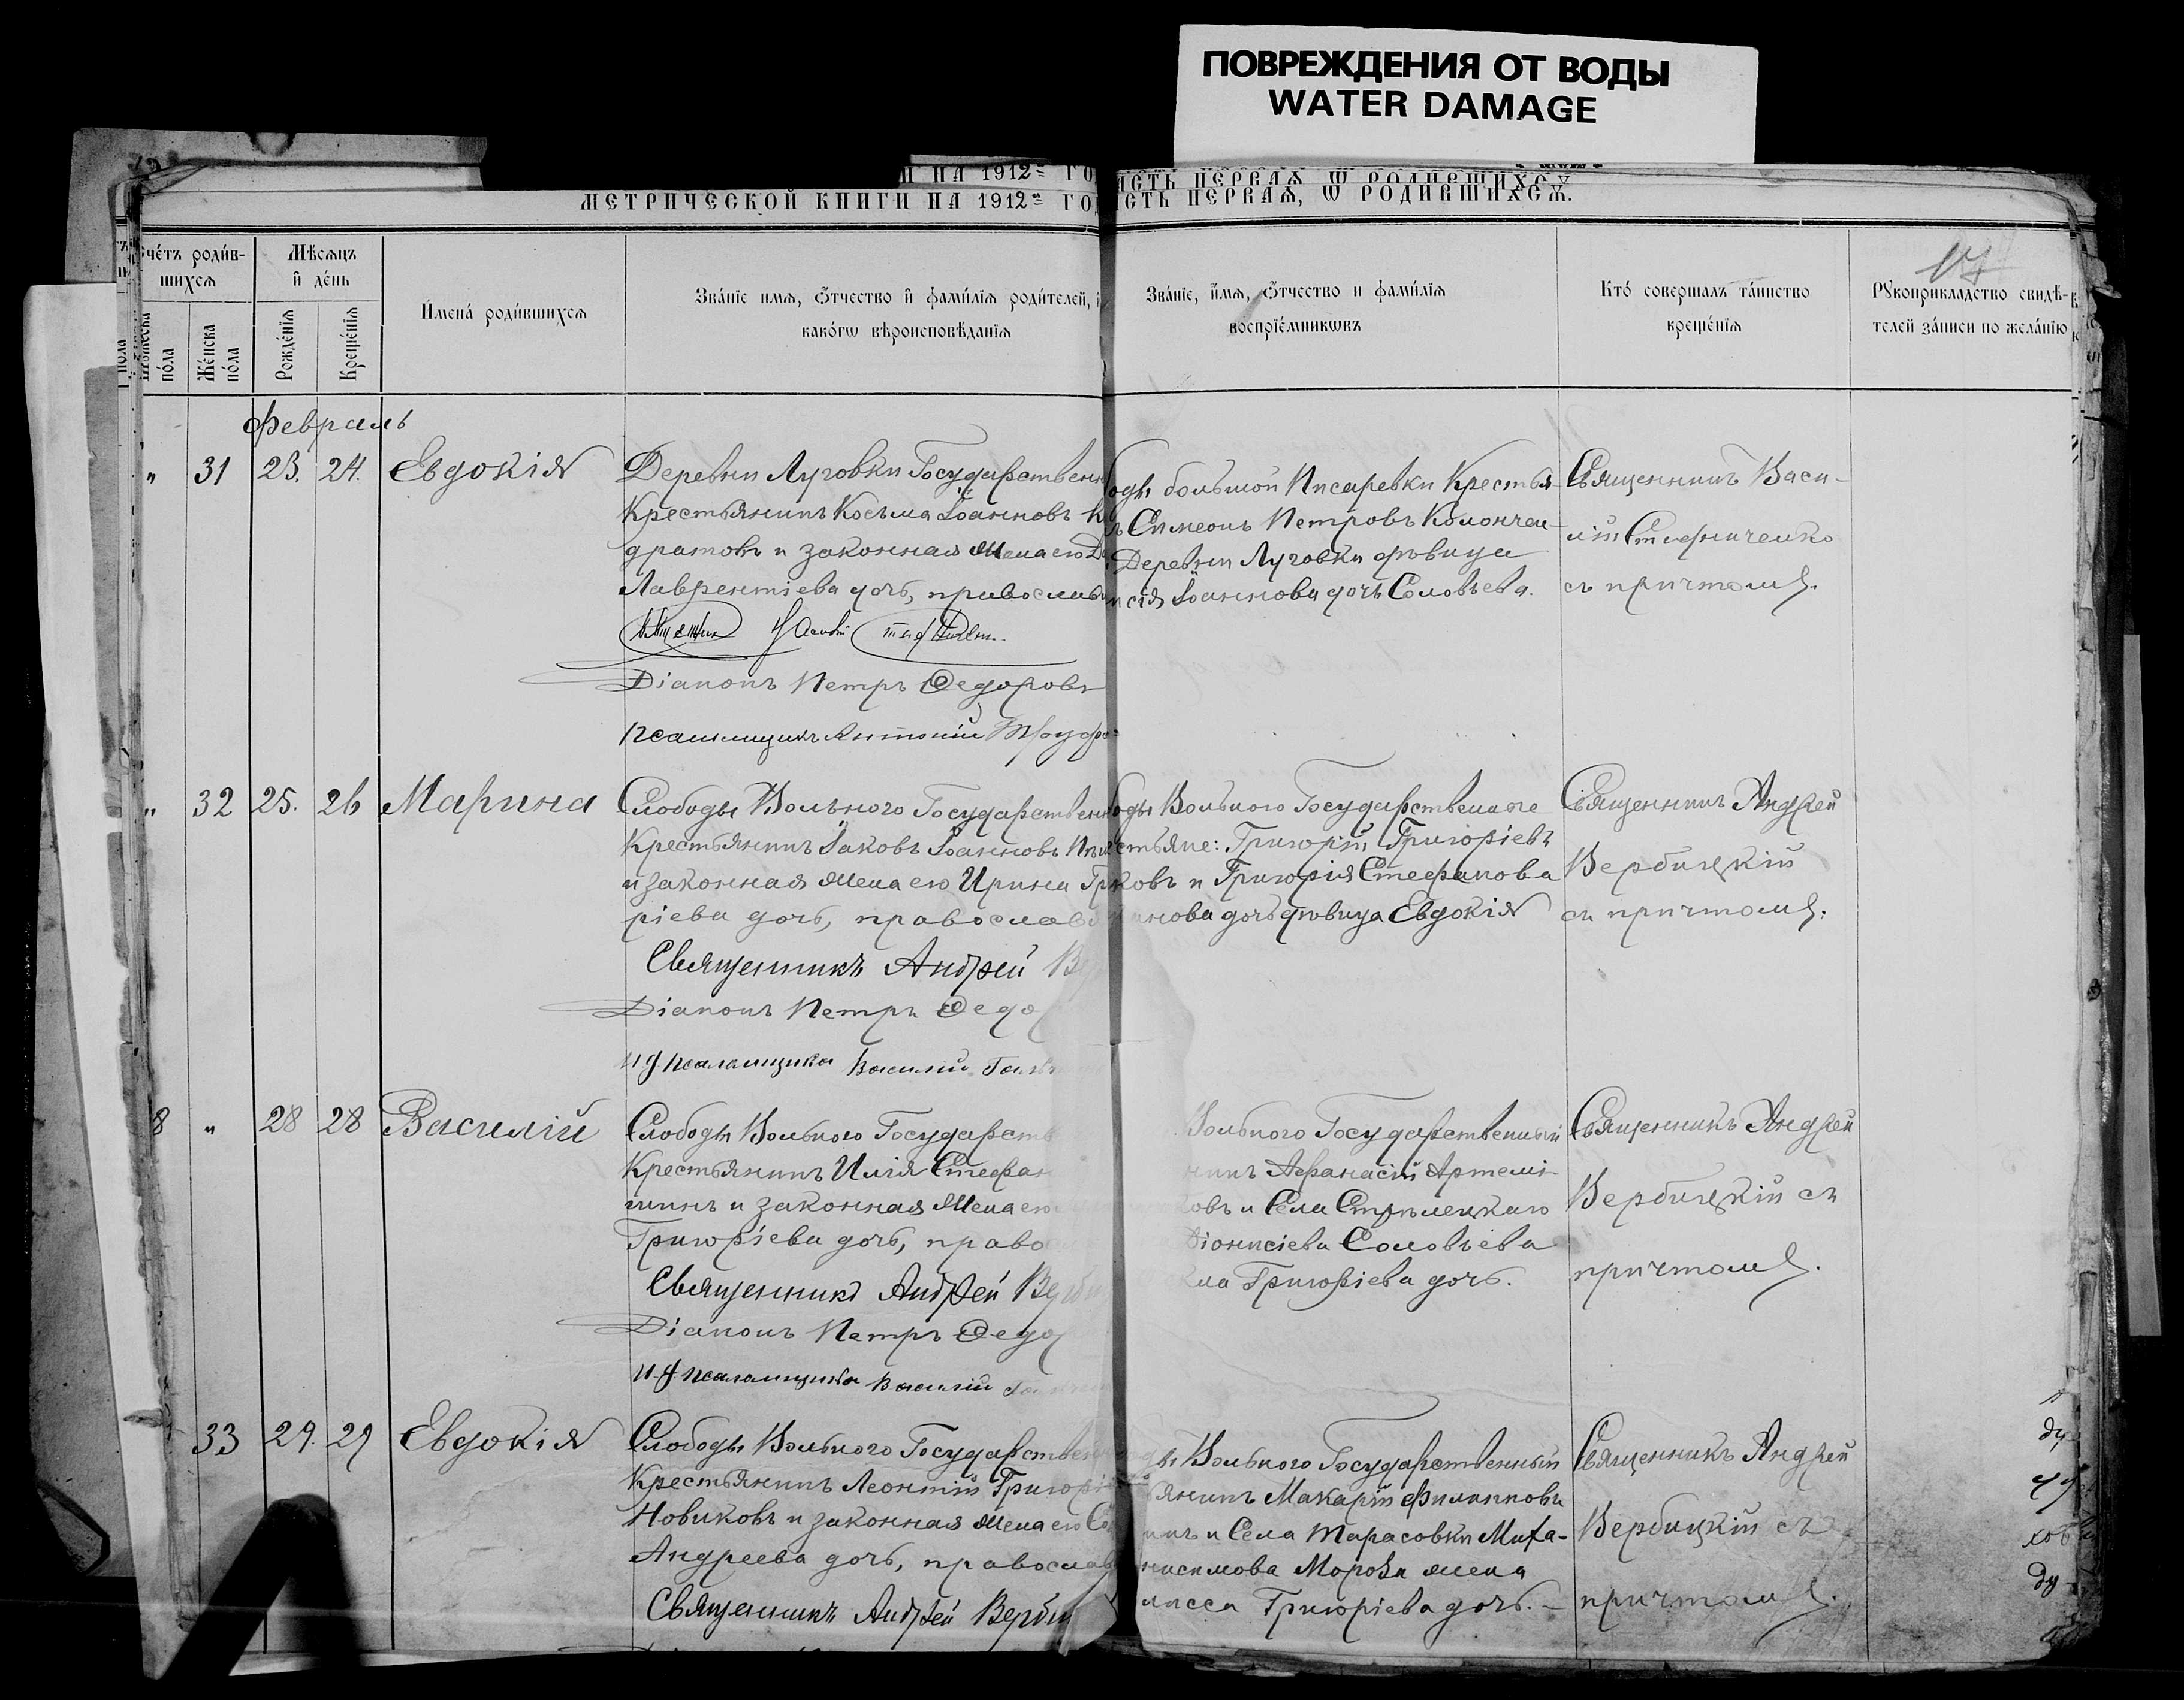 ПОВРЕЖДЕНИЯ ОТ ВОДЫ
WATER DAMAGE
И НА 1912 ГО
АСТЬ ПЕРВАѦ Ѡ РОДИВШИХСѦ
МЕТРИЧЕСКОЙ КНИГИ НА 1912 ГО
СТЬ ПЕРВАѦ, Ѡ РОДИВШИХСѦ.
Счéтъ роди́в-
шихсѧ
Мѣсѧцъ
и҆ де́нь
По́ла
Же́нска
по́ла
Рожде́нїѧ
Креще́нїѧ
И҆мена́ роди́вшихсѧ
Зва́нїе имѧ, о҆́тчество и҆ фами́лїѧ роди́телей,
како́гѡ вѣроисповѣ́данїѧ
Зва́нїе, и҆́мѧ, о҆́тчество и фами́лїѧ
воспрїе́мникѡвъ
Кто́ совершалъ та́инство
креще́нїѧ
Рꙋкоприкладство свидѣ́-
телей за́писи по жела́нїю
Февраль
" 31 23. 24. Евдокія
Деревни Луговки Государственн
Крестьянинъ Косьма Іоанновъ К
дратовъ и законная жена его
Лаврентіева дочь, православн
Діаконъ Петръ Ѳедоровъ
Псаломщикъ Антоній
оды большой Писаревки Крестья-
Симеонъ Петровъ
Деревни Луговки дѣвица
сія Іоаннова дочь Соловьева.
Священникъ Васи-
лій
съ причтомъ.
" 32 25. 26 Марина
Слободы Вольного Государственн
Крестьянинъ Іаковъ Іоанновъ
и законная жена его Ирина Г
ріева дочь, православ
Священникъ Андрей Ве
Діаконъ Петръ Ѳедо
и д псаломщика Василій
боды Вольного Государственные
естьяне: Григорій Григорьевъ
ковъ и Григорія Стефанова
нова дочь дѣвица Евдокія
Священникъ Андрей
Вербицкій
съ причтомъ.
8 " 28 28 Василій
Слободы Вольного Государств
Крестьянинъ Илія Стефан
шинъ и законная жена его
Григоріева дочь, право
Священникъ Андрей Верби
Діаконъ Петръ Ѳедо
и д псаломщика Василій
Вольного Государственный
нинъ Аѳанасій Артемі-
ковъ и Села Стрѣлецкаго
Діонисіева Соловьева
Григоріева дочь.
Священникъ Андрей
Вербицкій съ
причтомъ.
33 29. 29 Евдокія
Слободы Вольного Государствен
Крестьянинъ Леонтій Григорі
Новиковъ и законная жена его
Андреева дочь, православ
Священникъ Андрей Верби
ды Вольного Государственный
янинъ Макарій Филипповъ
инъ и Села Тарасовки Миха-
нисимова Мороза жена
Григоріева дочь. -
Священникъ Андрей
Вербицкій съ
причтомъ.